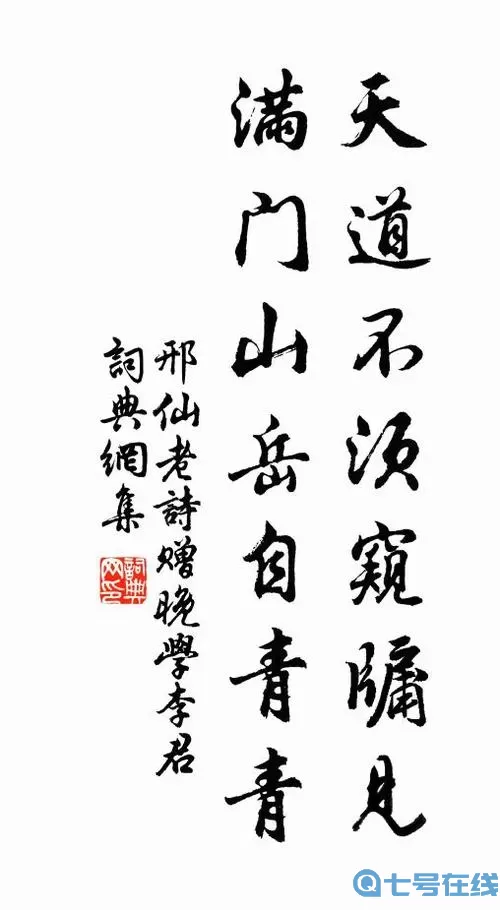 天道不須窺牖見
滿門山岳自青青
邢仙老詩贈晚學李君
詞典網集
詞典网印
七号在线